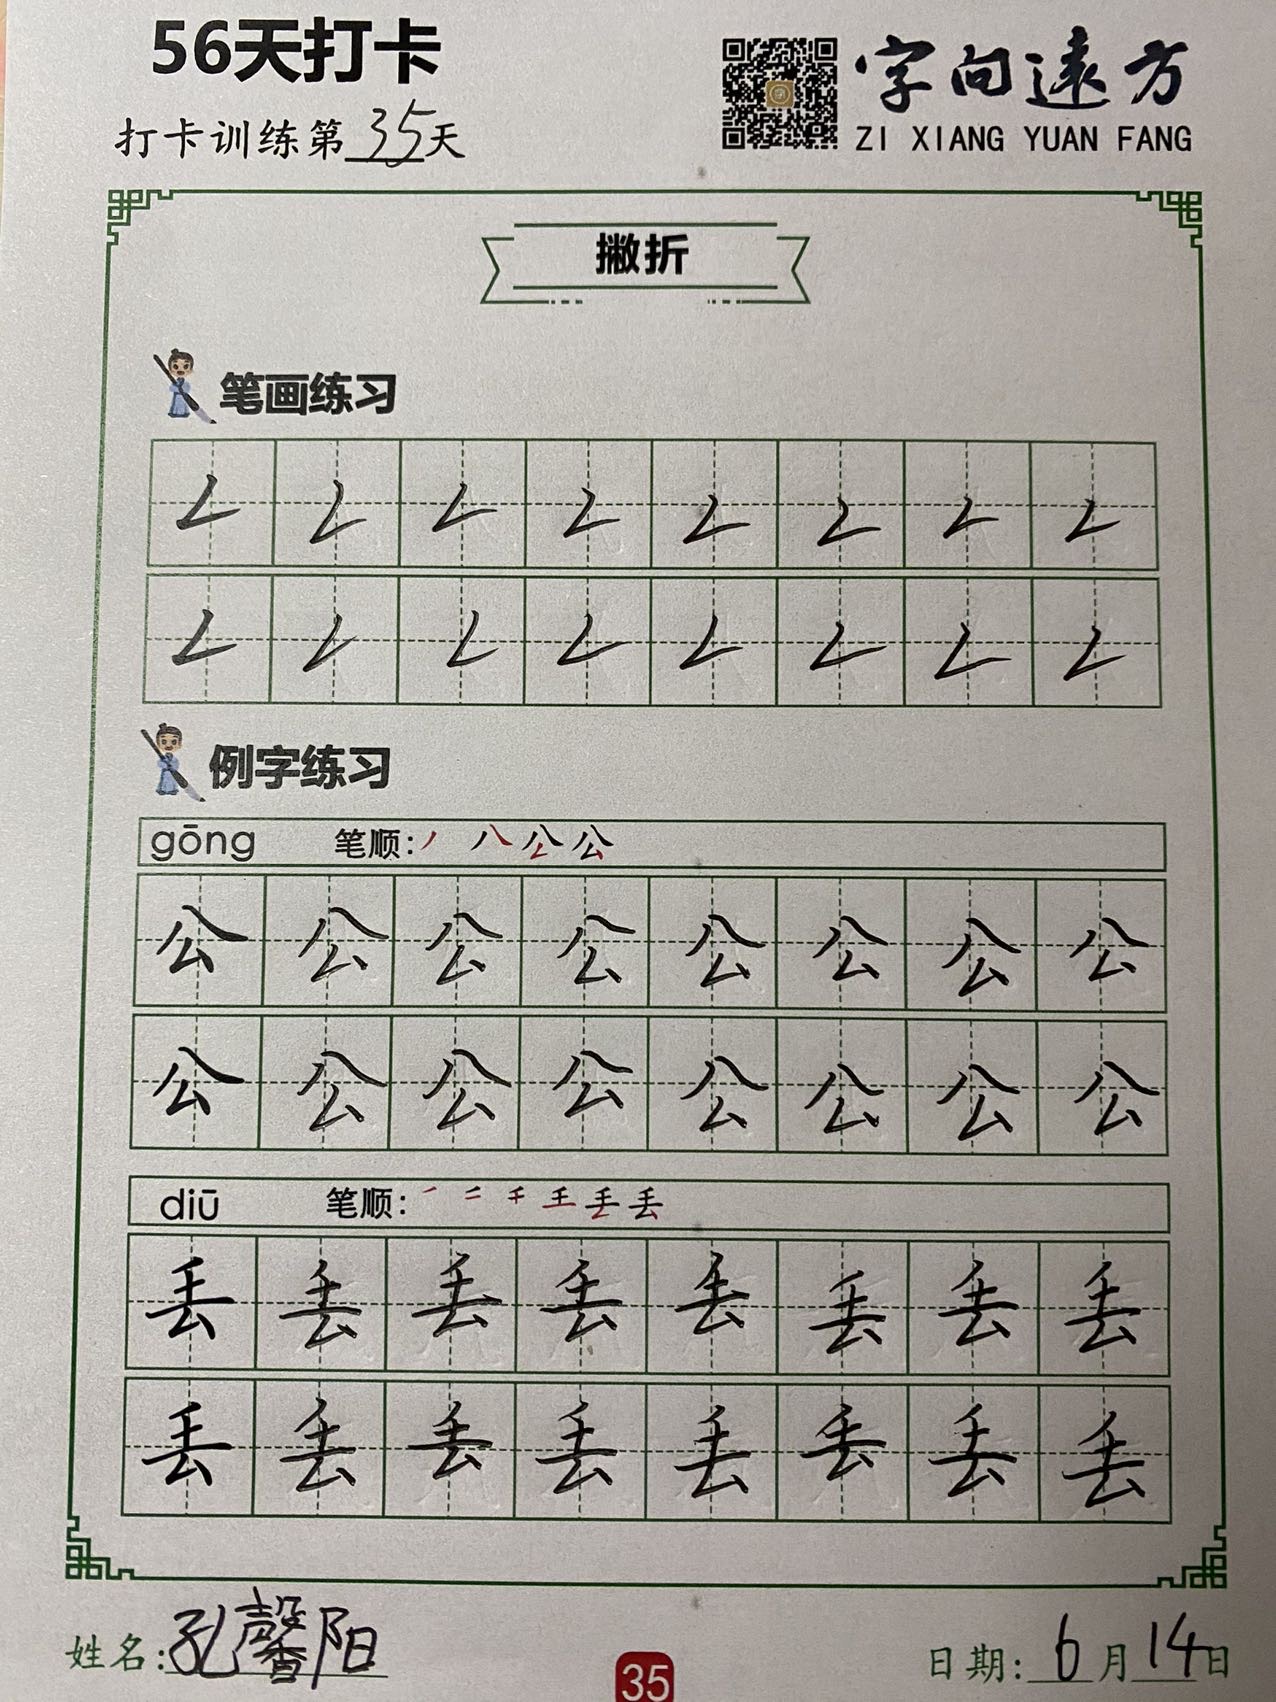 56天打卡
字向遠方
打卡训练第35天
ZI XIANG YUAN FANG
撇折
笔画练习
𠃋 𠃋 𠃋 𠃋 𠃋 𠃋 𠃋 𠃋
𠃋 𠃋 𠃋 𠃋 𠃋 𠃋 𠃋 𠃋
例字练习
gōng 笔顺:丿 八 公 公
公 公 公 公 公 公 公 公
公 公 公 公 公 公 公 公
diū 笔顺: 丢
丢 丢 丢 丢 丢 丢 丢 丢
丢 丢 丢 丢 丢 丢 丢 丢
姓名:孔馨阳
日期:6月14日
35